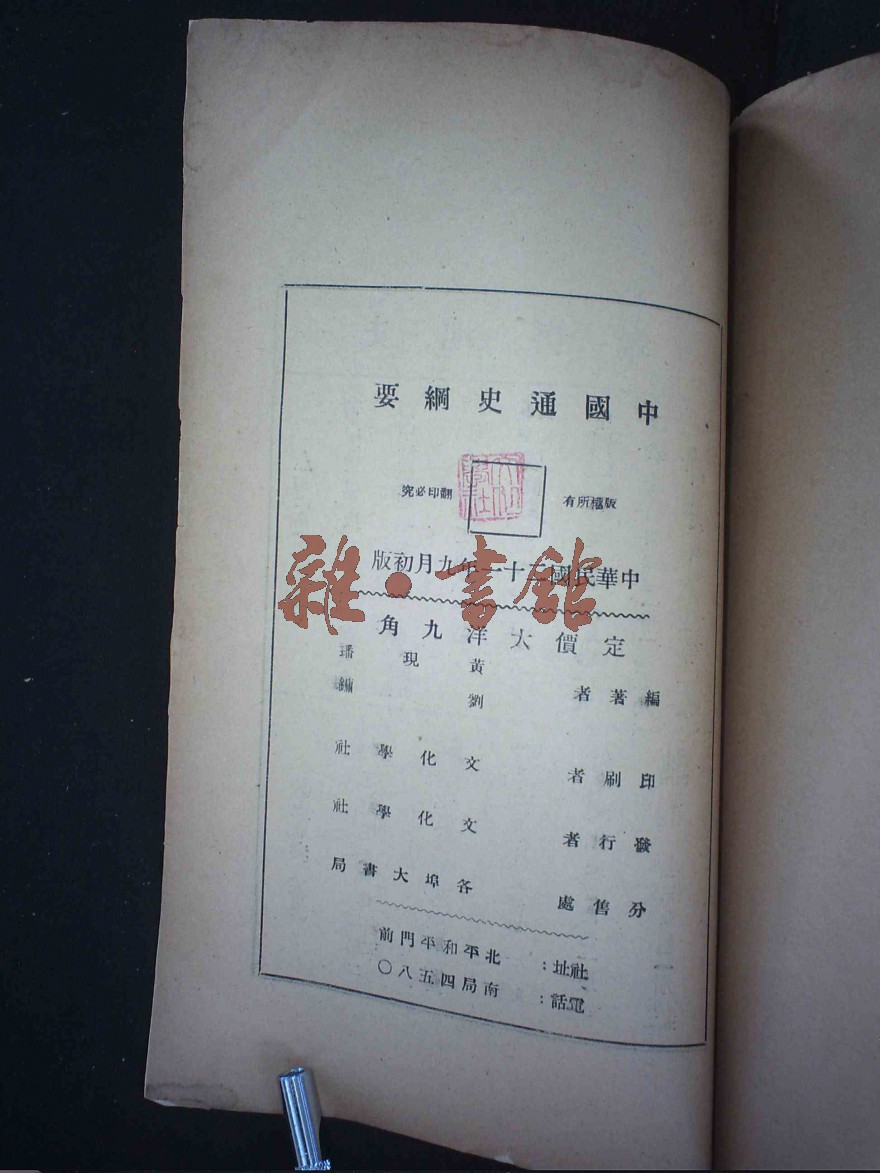 中國通史綱要
版權所有 翻印必究
中華民國二十一年九月初版
定價大洋九角
編著者 黃現璠
劉鏞
印刷者 文化學社
發行者 文化學社
分售處 各埠大書局
社址:北平和平門前
電話:南局四五八〇
雜·書館